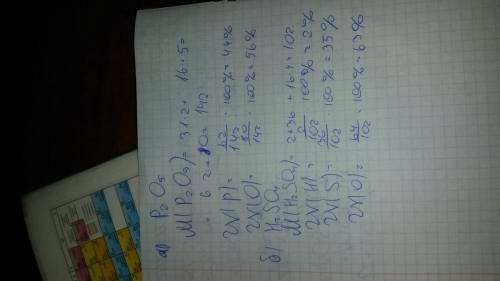 а) P₂O₅
M(P₂O₅) = 31·2 + 16·5 =
= 62 + 80 = 142
W(P) = 62/142 · 100% = 44%
W(O) = 80/142 · 100% = 56%
б) H₂SO₄
M(H₂SO₄) = 2 + 36 + 16·4 = 102
W(H) = 2/102 · 100% = 2%
W(S) = 36/102 · 100% = 35%
W(O) = 64/102 · 100% = 63%